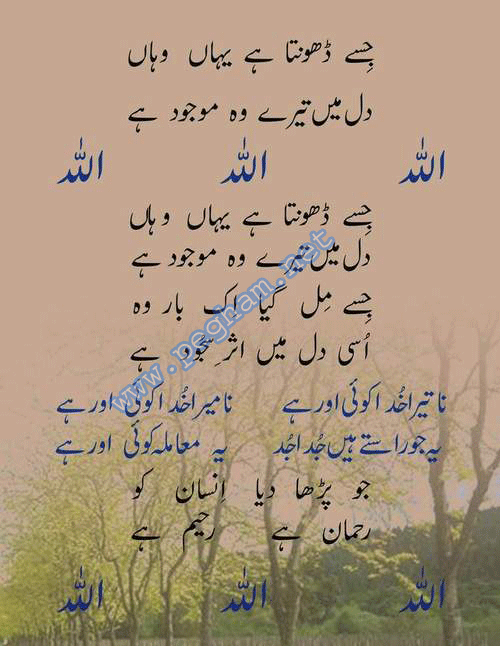 جِسے ڈھونتا ہے یہاں وہاں
دل میں تیرے وہ موجود ہے
اللہ اللہ اللہ
جِسے ڈھونتا ہے یہاں وہاں
دل میں تیرے وہ موجود ہے
جِسے مِل گیا اِک بار وہ
اُسی دل میں اثرِ سجُود ہے
نا تیرا خُدا کوئی اور ہے نا میرا خُدا کوئی اور ہے
یہ جو راستے ہیں جُدا جُدا یہ معاملہ کوئی اور ہے
جو پڑھا دیا اِنسان کو
رحمان ہے رحیم ہے
اللہ اللہ اللہ
www.pegham.net